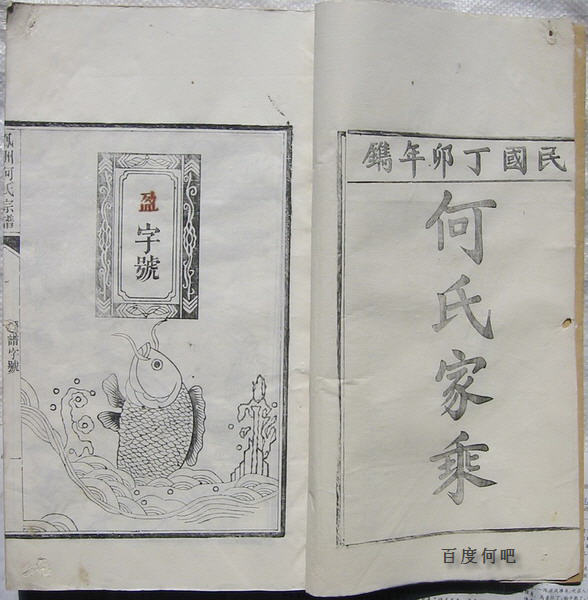 民國丁卯年鐫
何氏家乘
盈字號
州何氏宗譜
譜字號
一
百度何吧